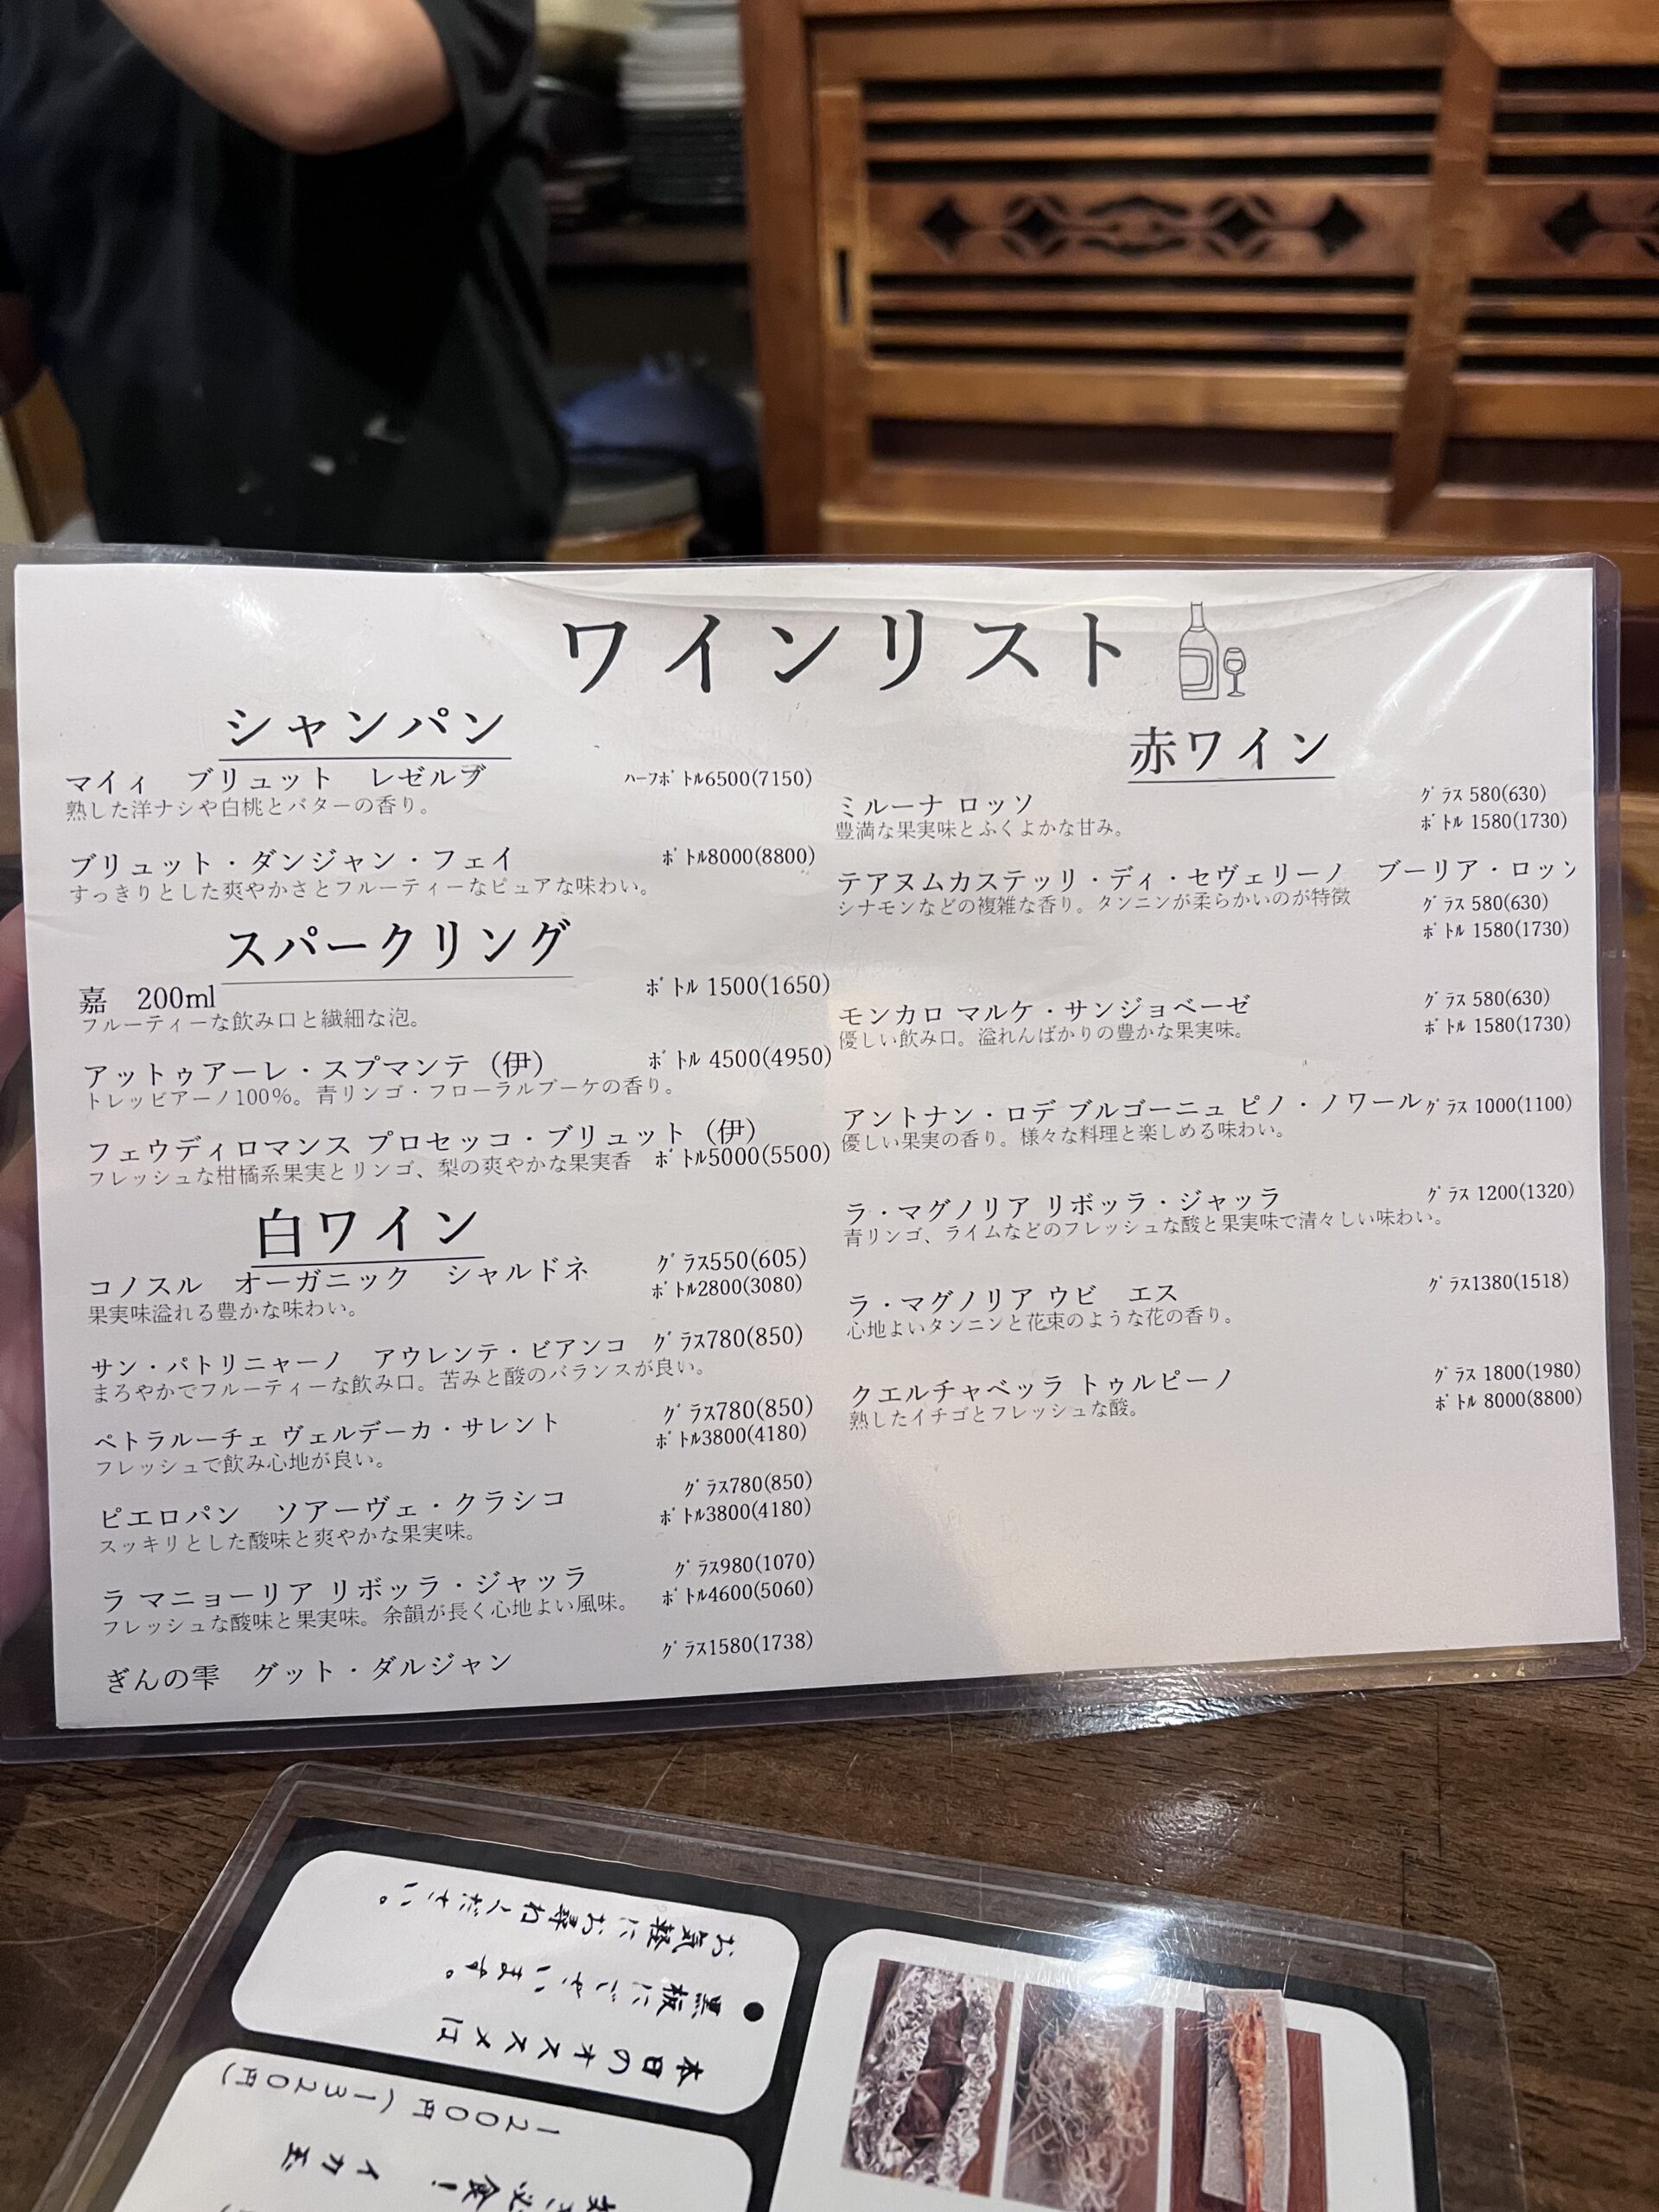 ワインリスト
シャンパン
マイィ　ブリュット　レゼルブ
ﾊｰﾌﾎﾞﾄﾙ6500(7150)
熟した洋ナシや白桃とバターの香り。
ブリュット・ダンジャン・フェイ
ﾎﾞﾄﾙ8000(8800)
すっきりとした爽やかさとフルーティーなピュアな味わい。
スパークリング
嘉　200ml
ﾎﾞﾄﾙ 1500(1650)
フルーティーな飲み口と繊細な泡。
アットゥアーレ・スプマンテ（伊）
ﾎﾞﾄﾙ 4500(4950)
トレッビアーノ100%。青リンゴ・フローラルブーケの香り。
フェウディロマンス プロセッコ・ブリュット（伊）
フレッシュな柑橘系果実とリンゴ、梨の爽やかな果実香
ﾎﾞﾄﾙ5000(5500)
白ワイン
コノスル　オーガニック　シャルドネ
ｸﾞﾗｽ550(605)
ﾎﾞﾄﾙ2800(3080)
果実味溢れる豊かな味わい。
サン・パトリニャーノ　アウレンテ・ビアンコ
ｸﾞﾗｽ780(850)
まろやかでフルーティーな飲み口。苦みと酸のバランスが良い。
ペトラルーチェ ヴェルデーカ・サレント
ｸﾞﾗｽ780(850)
ﾎﾞﾄﾙ3800(4180)
フレッシュで飲み心地が良い。
ピエロパン　ソアーヴェ・クラシコ
ｸﾞﾗｽ780(850)
ﾎﾞﾄﾙ3800(4180)
スッキリとした酸味と爽やかな果実味。
ラ マニョーリア リボッラ・ジャッラ
ｸﾞﾗｽ980(1070)
ﾎﾞﾄﾙ4600(5060)
フレッシュな酸味と果実味。余韻が長く心地よい風味。
ぎんの雫　グット・ダルジャン
ｸﾞﾗｽ1580(1738)
赤ワイン
ミルーナ ロッソ
ｸﾞﾗｽ 580(630)
ﾎﾞﾄﾙ 1580(1730)
豊満な果実味とふくよかな甘み。
テアヌムカステッリ・ディ・セヴェリーノ　プーリア・ロッソ
シナモンなどの複雑な香り。タンニンが柔らかいのが特徴
ｸﾞﾗｽ 580(630)
ﾎﾞﾄﾙ 1580(1730)
モンカロ マルケ・サンジョベーゼ
ｸﾞﾗｽ 580(630)
ﾎﾞﾄﾙ 1580(1730)
優しい飲み口。溢れんばかりの豊かな果実味。
アントナン・ロデ ブルゴーニュ ピノ・ノワール
ｸﾞﾗｽ 1000(1100)
優しい果実の香り。様々な料理と楽しめる味わい。
ラ・マグノリア リボッラ・ジャッラ
ｸﾞﾗｽ 1200(1320)
青リンゴ、ライムなどのフレッシュな酸と果実味で清々しい味わい。
ラ・マグノリア ウビ　エス
ｸﾞﾗｽ1380(1518)
心地よいタンニンと花束のような花の香り。
クエルチャベッラ トゥルピーノ
ｸﾞﾗｽ 1800(1980)
ﾎﾞﾄﾙ 8000(8800)
熟したイチゴとフレッシュな酸。
本日のオススメは
●黒板にございます。
お気軽にお尋ねください。
イカ玉
1200円(1320円)